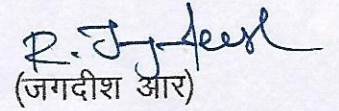 R. Jagdeesh
(जगदीश आर)